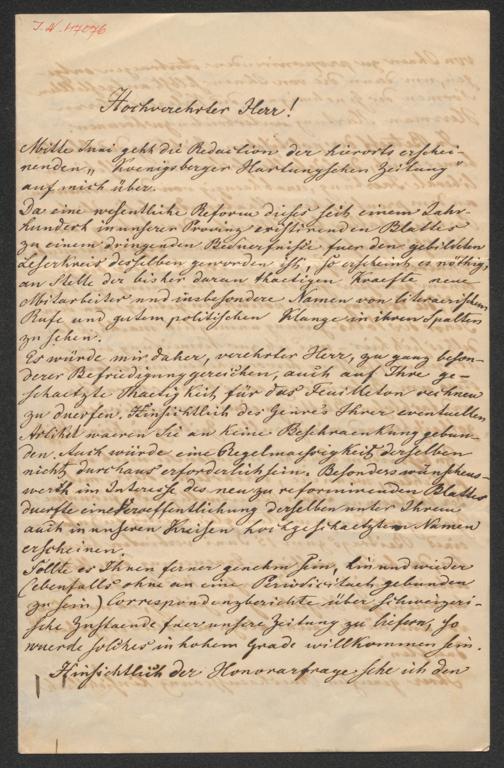 J. N. 47076
Hochverehrter Herr!
Mitte Juni geht die Redaction der hierorts erschei-
nenden „Koenigsberger Hartungschen Zeitung"
auf mich über.
Da eine wesentliche Reform dieses seit einem Jahr-
hundert in unserer Provinz existirenden Blattes
zu einem dringenden Beduerfnisse fuer den gebildeten
Leserkreis desselben geworden ist, so erscheint es nöthig,
an Stelle der bisher daran thaetigen Kraefte neue
Mitarbeiter und insbesondere Namen von literaerischem
Rufe und gutem politischen Klange in ihren Spalten
zu sehen.
Es würde mir daher, verehrter Herr, zu ganz beson-
derer Befriedigung gereichen, auch auf Ihre ge-
schaetzte Thaetigkeit für das Feuilleton rechnen
zu duerfen. Hinsichtlich des Genres Ihrer eventuellen
Artikel waeren Sie an keine Beschraenkung gebun-
den. Auch würde eine Regelmaessigkeit derselben
nicht durchaus erforderlich sein. Besonders wünschens-
werth im Interesse des neu zu reformirenden Blattes
duerfte eine Veroeffentlichung derselben unter Ihrem
auch in unseren Kreisen hochgeschaetztem Namen
erscheinen.
Sollte es Ihnen ferner genehm sein, hin und wieder
(ebenfalls ohne an eine Periodicitaet gebunden
zu sein) Correspondenzberichte über schweizeri-
sche Zustaende fuer unsere Zeitung zu liefern, so
wuerde solches in hohem Grade willkommen sein.
Hinsichtlich der Honorarfrage sehe ich den